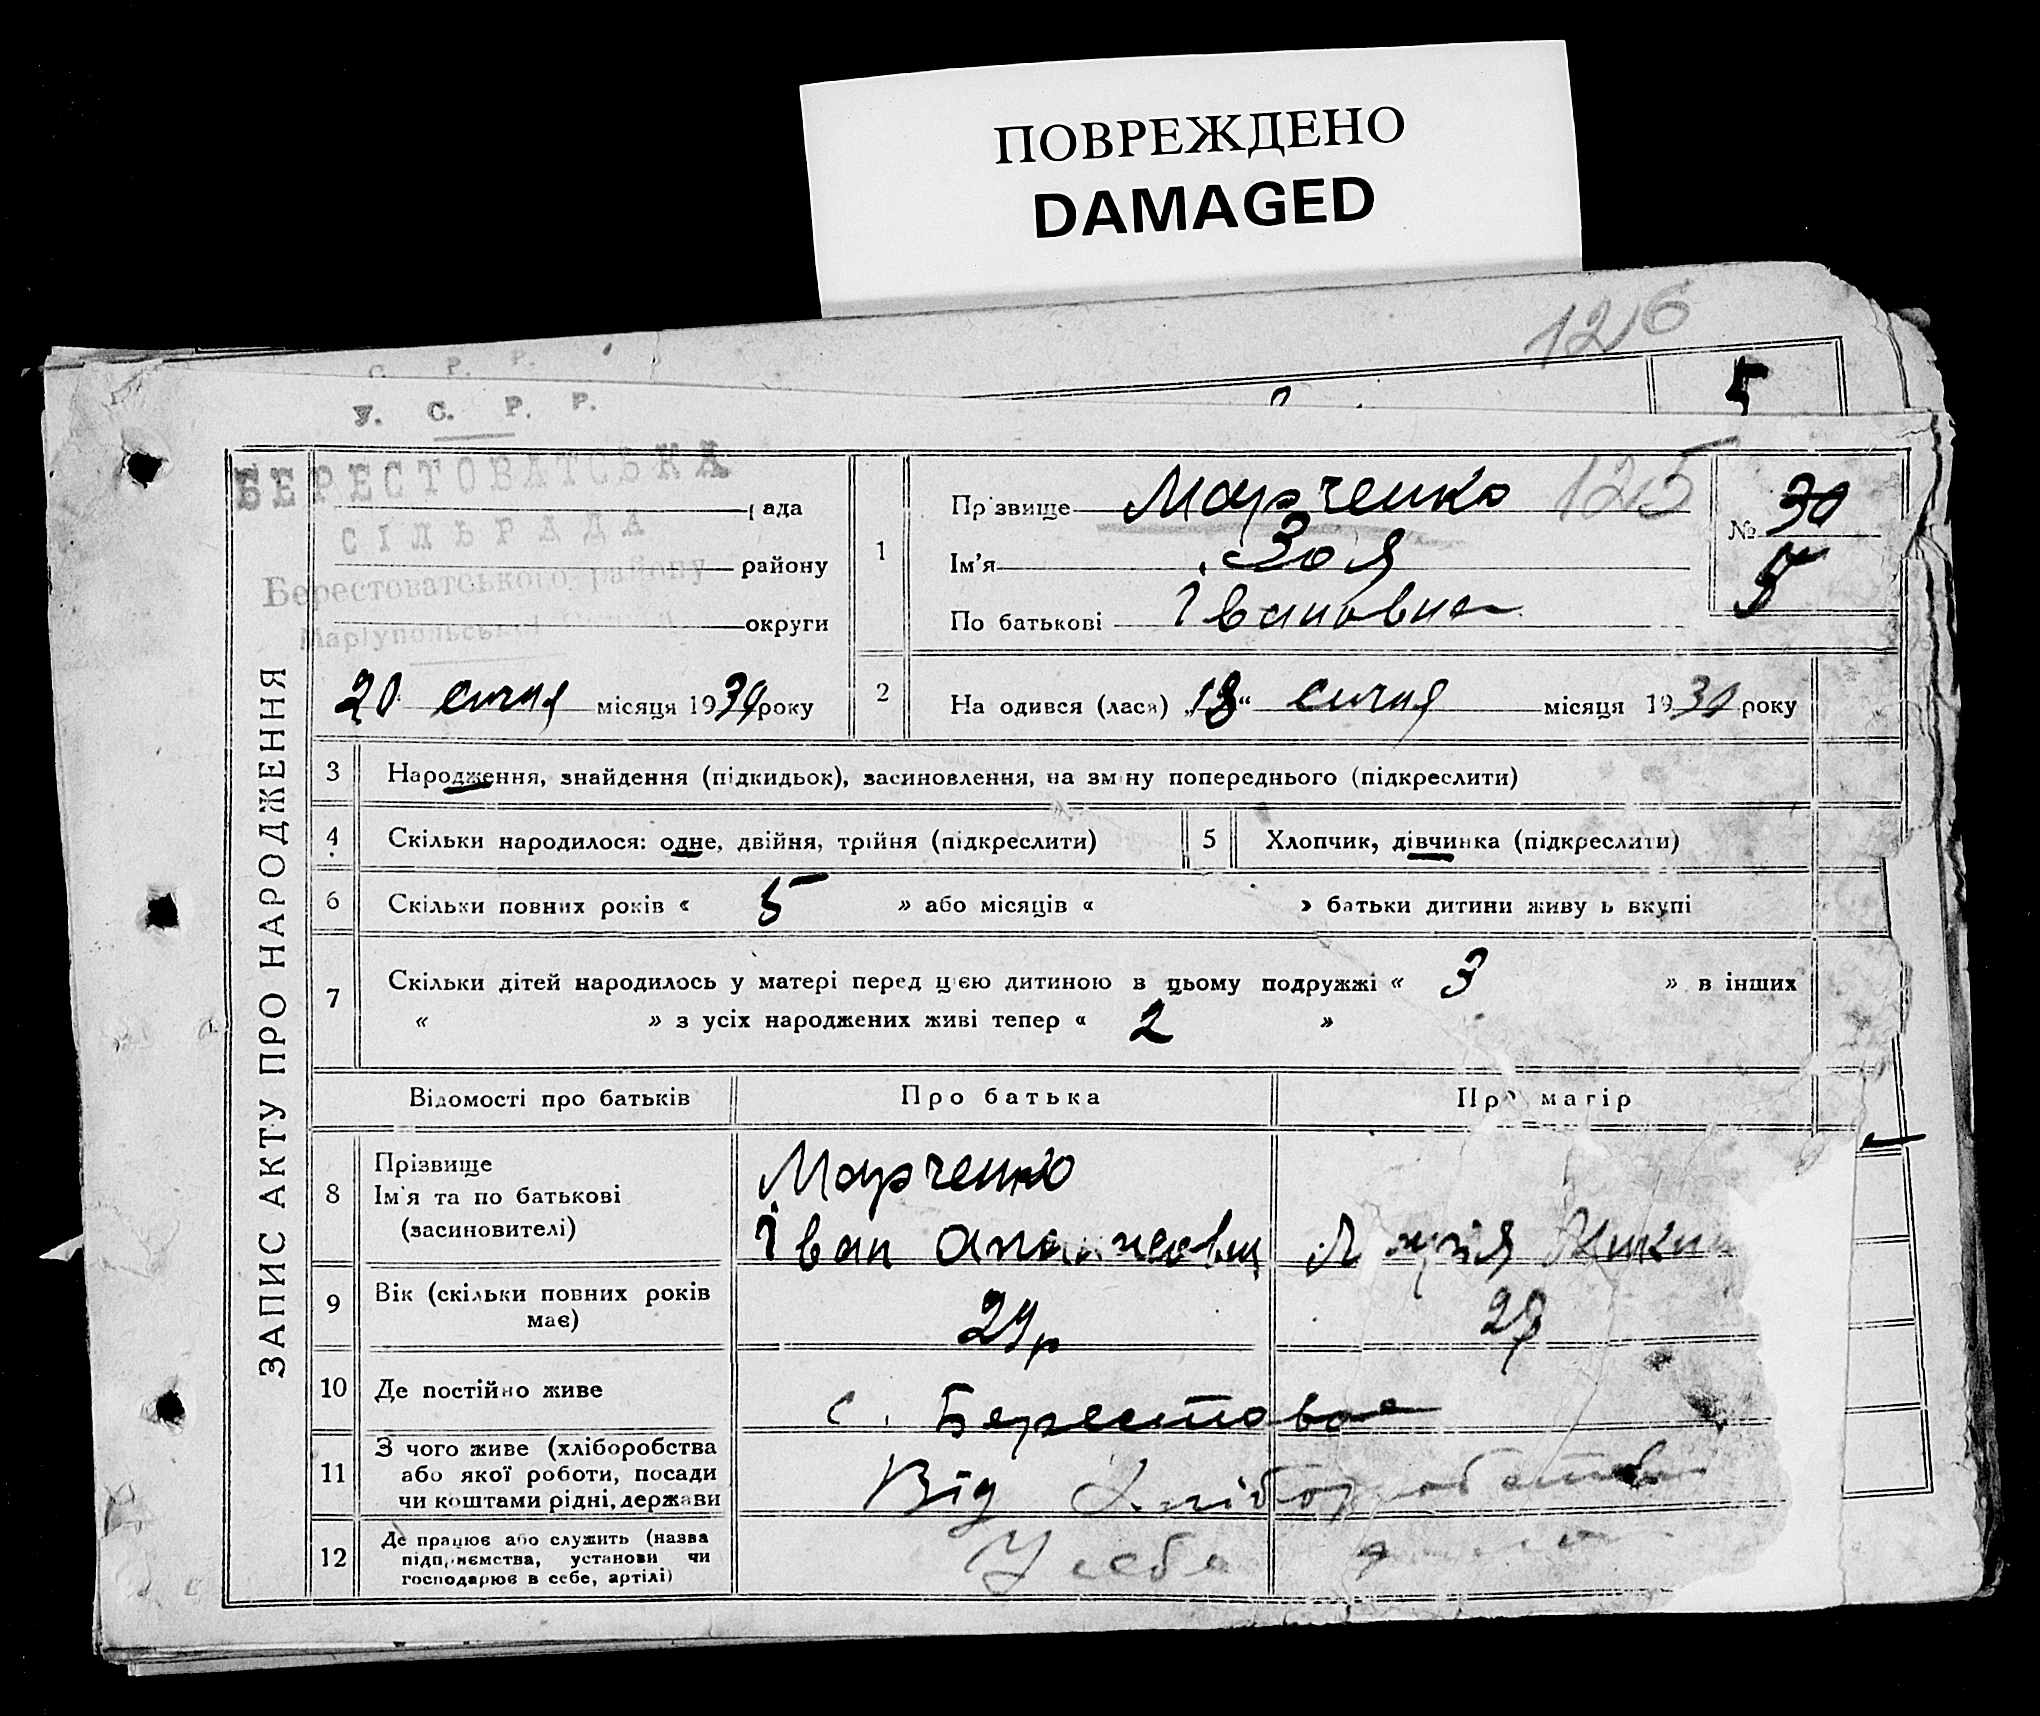 ПОВРЕЖДЕНО
DAMAGED
126
С. Р. Р.
5
У. С. Р. Р.
БЕРЕСТОВАТСЬКА
СІЛЬРАДА
Берестоватського району
Маріупольської
рада
району
округи
20 січня місяця 1930 року
ЗАПИС АКТУ ПРО НАРОДЖЕННЯ
1
Прізвище Марченко 125
Ім’я Зоя
По батькові Івановна
№ 30
5
2 На одився (лася) „18“ січня місяця 1930 року
3 Народження, знайдення (підкидьок), засиновлення, на зміну попереднього (підкреслити)
4 Скільки народилося: одне, двійня, трійня (підкреслити) 5 Хлопчик, дівчинка (підкреслити)
6 Скільки повних років « 5 » або місяців « » батьки дитини живу ь вкупі
7 Скільки дітей народилось у матері перед цією дитиною в цьому подружжі « 3 » в інших
« » з усіх народжених живі тепер « 2 »
Відомості про батьків Про батька Про матір
8 Прізвище
Ім’я та по батькові
(засиновителі)
Марченко
Іван
9 Вік (скільки повних років
має)
29р
10 Де постійно живе с. Берестове
11 З чого живе (хліборобства
або якої роботи, посади
чи коштами рідні, держави
Від Хліборобства
12 Де працює або служить (назва
підприємства, установи чи
господарює в себе, артілі)
У себе